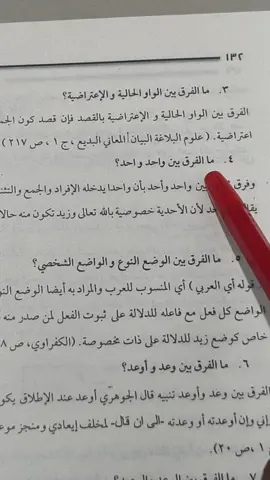 ١٣٢
٣. ما الفرق بين الواو الحالية و الإعتراضية؟
الفرق بين الواو الحالية و الإعتراضية بالقصد فإن قصد كون الجم
اعتراضية. (علوم البلاغة البيان المعاني البديع ،ج ١ ، ص ٢١٧)
٤. ما الفرق بين واحد و احد؟
وفرق بين واحد وأحد بأن واحدا يدخله الإفراد والجمع والتث
يقال لأن الأحدية خصوصية بالله تعالى وزيد تكون منه حالا
٥. ما الفرق بين الوضع النوع و الواضع الشخصي؟
قوله أي العربي ) أي المنسوب للعرب والمراد به أيضا الوضع النو
الواضع كل فعل مع فاعله للدلالة على ثبوت الفعل لمن صدر منه
خاص كوضع زيد للدلالة على ذات مخصوصة. (الكفراوي، ص ٨
٦. ما الفرق بين وعد و أوعد؟
الفرق بين وعد وأوعد تنبيه قال الجوهري أوعد عند الإطلاق يكو
إني وإن أوعدته أو وعدته -الى ان قال- لمخلف إيعادي ومنجز موعد
١ ،ص ٢٠).